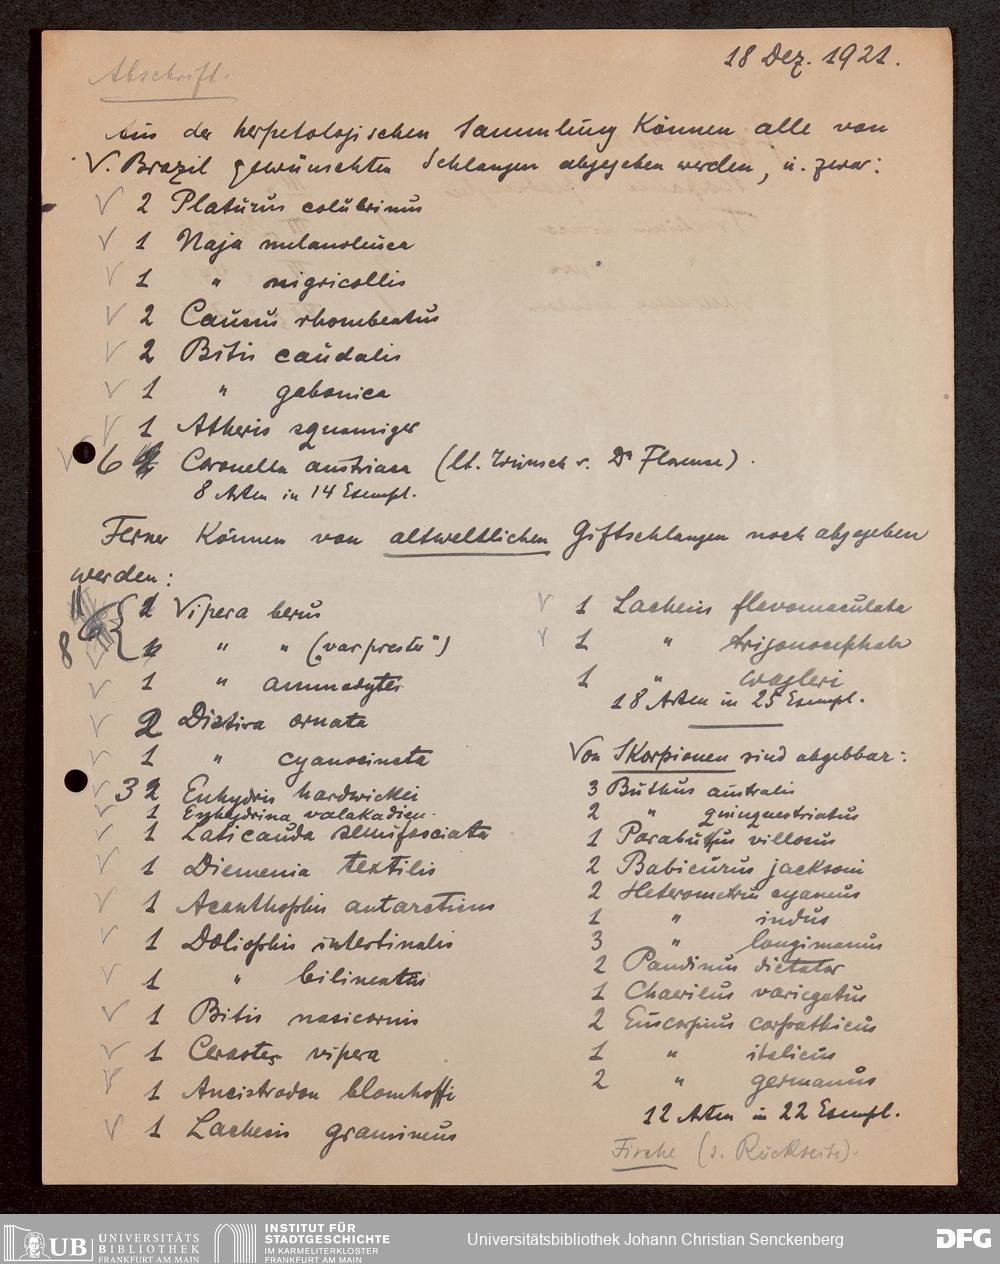 18 Dez. 1921.
Abschrift.
Aus der herpetologischen Sammlung können alle von
V. Brazil gewünschten Schlangen abgegeben werden, u. zwar:
√ 2 Platurus colubrinus
√ 1 Naja melanoleuca
√ 1 " nigricollis
√ 2 Causus rhombeatus
√ 2 Bitis caudalis
√ 1 " gabonica
√ 1 Atheris squamiger
√ 6 Coronella austriaca (lt. Wunsch v. Dr Florence).
8 Arten in 14 Exempl.
Ferner können von altweltlichen Giftschlangen noch abgegeben
werden:
11
8 2 Vipera berus
" " („var prester")
√ 1 " ammodytes
√ 2 Distira ornata
√ 1 " cyanocincta
√ 3 2 Enhydris hardwickei
√ 1 Enhydrina valakadien.
√ 1 Laticauda semifasciata
√ 1 Diemenia textilis
√ 1 Acanthophis antarcticus
√ 1 Doliophis intestinalis
√ 1 " bilineatus
√ 1 Bitis nasicornis
√ 1 Cerastes vipera
√ 1 Ancistrodon blomhoffi
√ 1 Lachesis gramineus
√ 1 Lachesis flavomaculata
√ 1 " trigonocephalus
1 " wagleri
18 Arten in 25 Exempl.
Von Skorpionen sind abgebbar:
3 Buthus australis
2 " quinquestriatus
1 Parabuthus villosus
2 Babicurus jacksoni
2 Heterometrus cyaneus
1 " indus
3 " longimanus
2 Pandinus dictator
1 Chaerilus variegatus
2 Euscorpius carpathicus
1 " italicus
2 " germanus
12 Arten in 22 Exempl.
Fische (s. Rückseite).
UB UNIVERSITÄTS
BIBLIOTHEK
FRANKFURT AM MAIN
INSTITUT FÜR
STADTGESCHICHTE
IM KARMELITERKLOSTER
FRANKFURT AM MAIN
Universitätsbibliothek Johann Christian Senckenberg
DFG